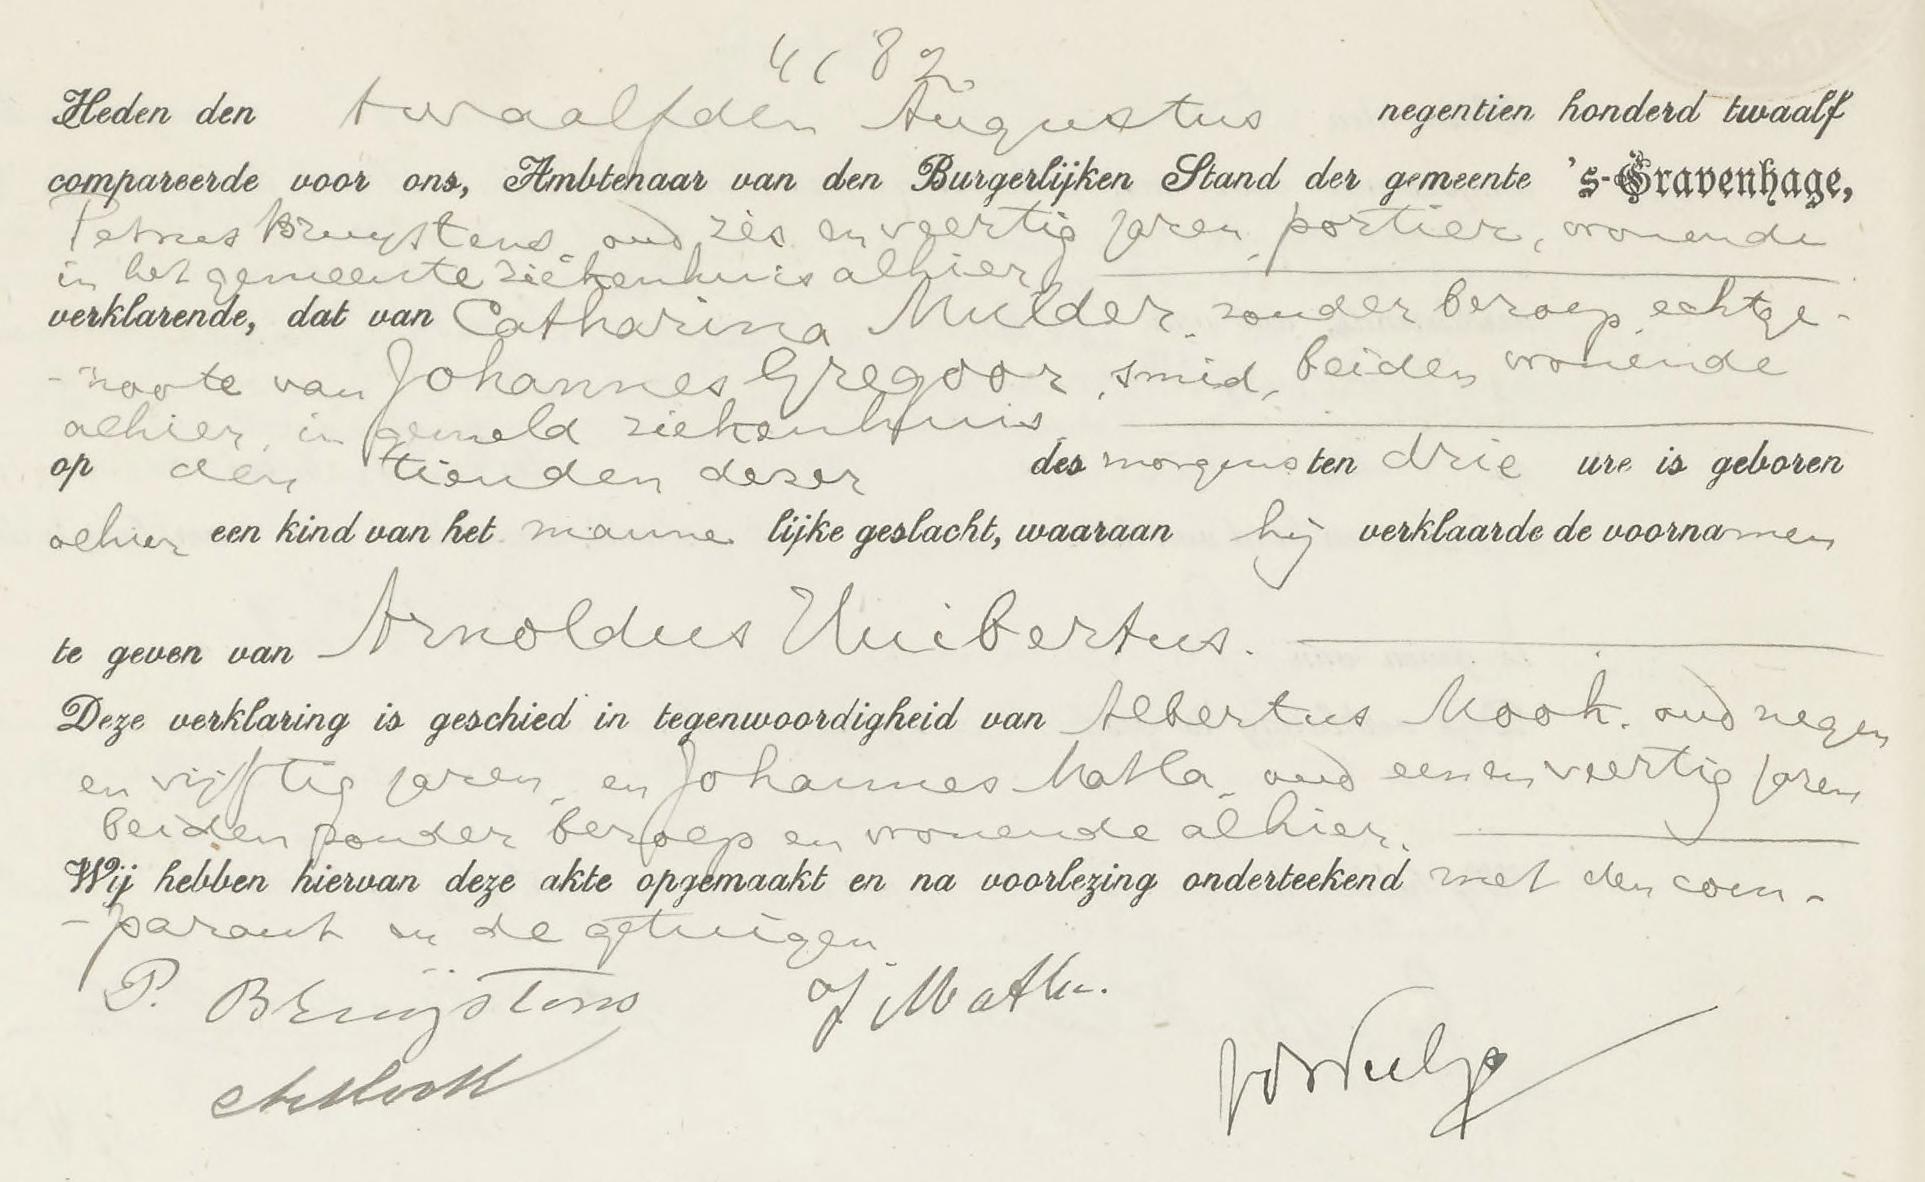 4182
Heden den twaalfden Augustus negentien honderd twaalf
compareerde voor ons, Ambtenaar van den Burgerlijken Stand der gemeente 's-Gravenhage,
Petrus Bruystens, oud zes en veertig jaren, portier, wonende
in het gemeente ziekenhuis alhier
verklarende, dat van Catharina Mulder, zonder beroep, echtge-
-noote van Johannes Gregoor, smid, beiden wonende
alhier, in gemeld ziekenhuis
op den tienden dezer des morgens ten drie ure is geboren
alhier een kind van het manne lijke geslacht, waaraan hij verklaarde de voornamen
te geven van Arnoldus Huibertus.
Deze verklaring is geschied in tegenwoordigheid van Albertus Mook, oud negen
en vijftig jaren, en Johannes Matla, oud een en veertig jaren
beiden zonder beroep en wonende alhier.
Wij hebben hiervan deze akte opgemaakt en na voorlezing onderteekend met den com-
-parant en de getuigen
P. Bruijstens J Matla.
A Mook